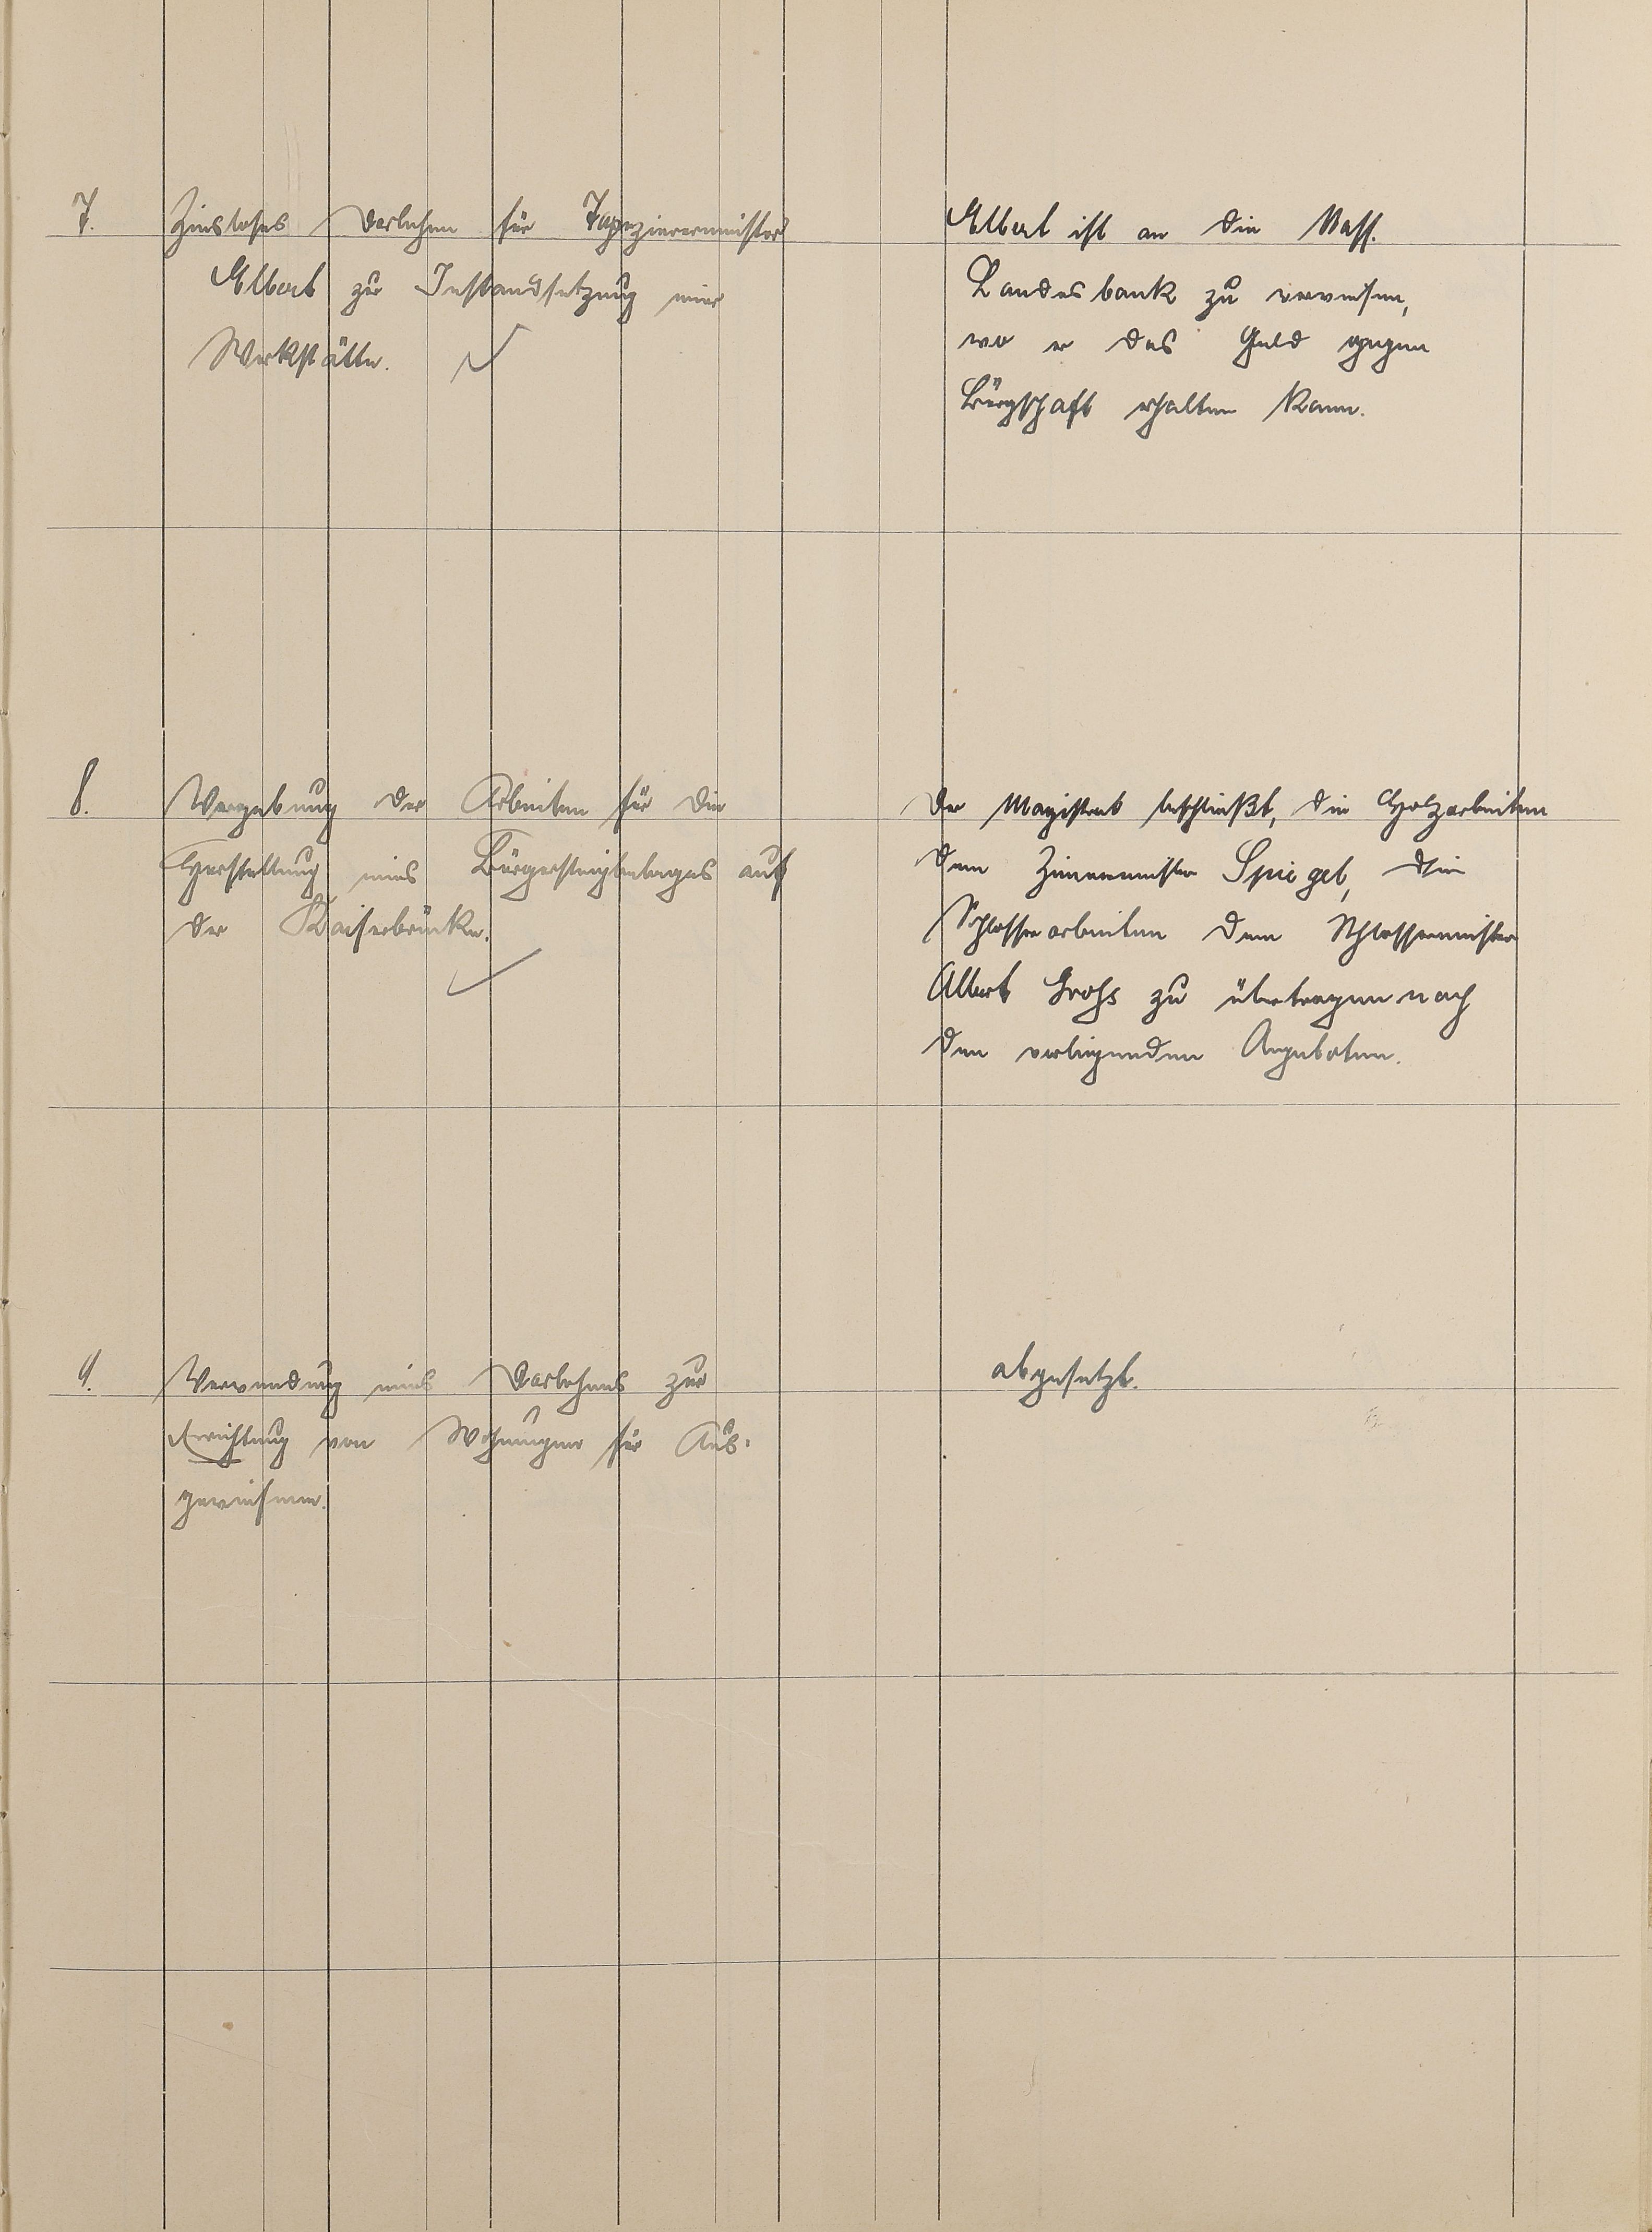 7.
Zinsloses Darlehen für Tapezierermeister
Elbert zur Instandsetzung einer
Werkstätte.
Elbert ist an die Nass.
Landesbank zu verweisen,
wo er das Geld gegen
Bürgschaft erhalten kann.
8.
Vergebung der Arbeiten für die
Herstellung eines Bürgersteigbelages auf
der Kaiserbrücke.
Der Magistrat beschließt, die Holzarbeiten
dem Zimmermeister Spiegel, die
Schlosserarbeiten dem Schlossermeister
Albert Grohs zu übertragen nach
den vorliegenden Angeboten.
9.
Verwendung eines Darlehens zur
Errichtung von Wohnungen für Aus-
gewiesene.
abgesetzt.